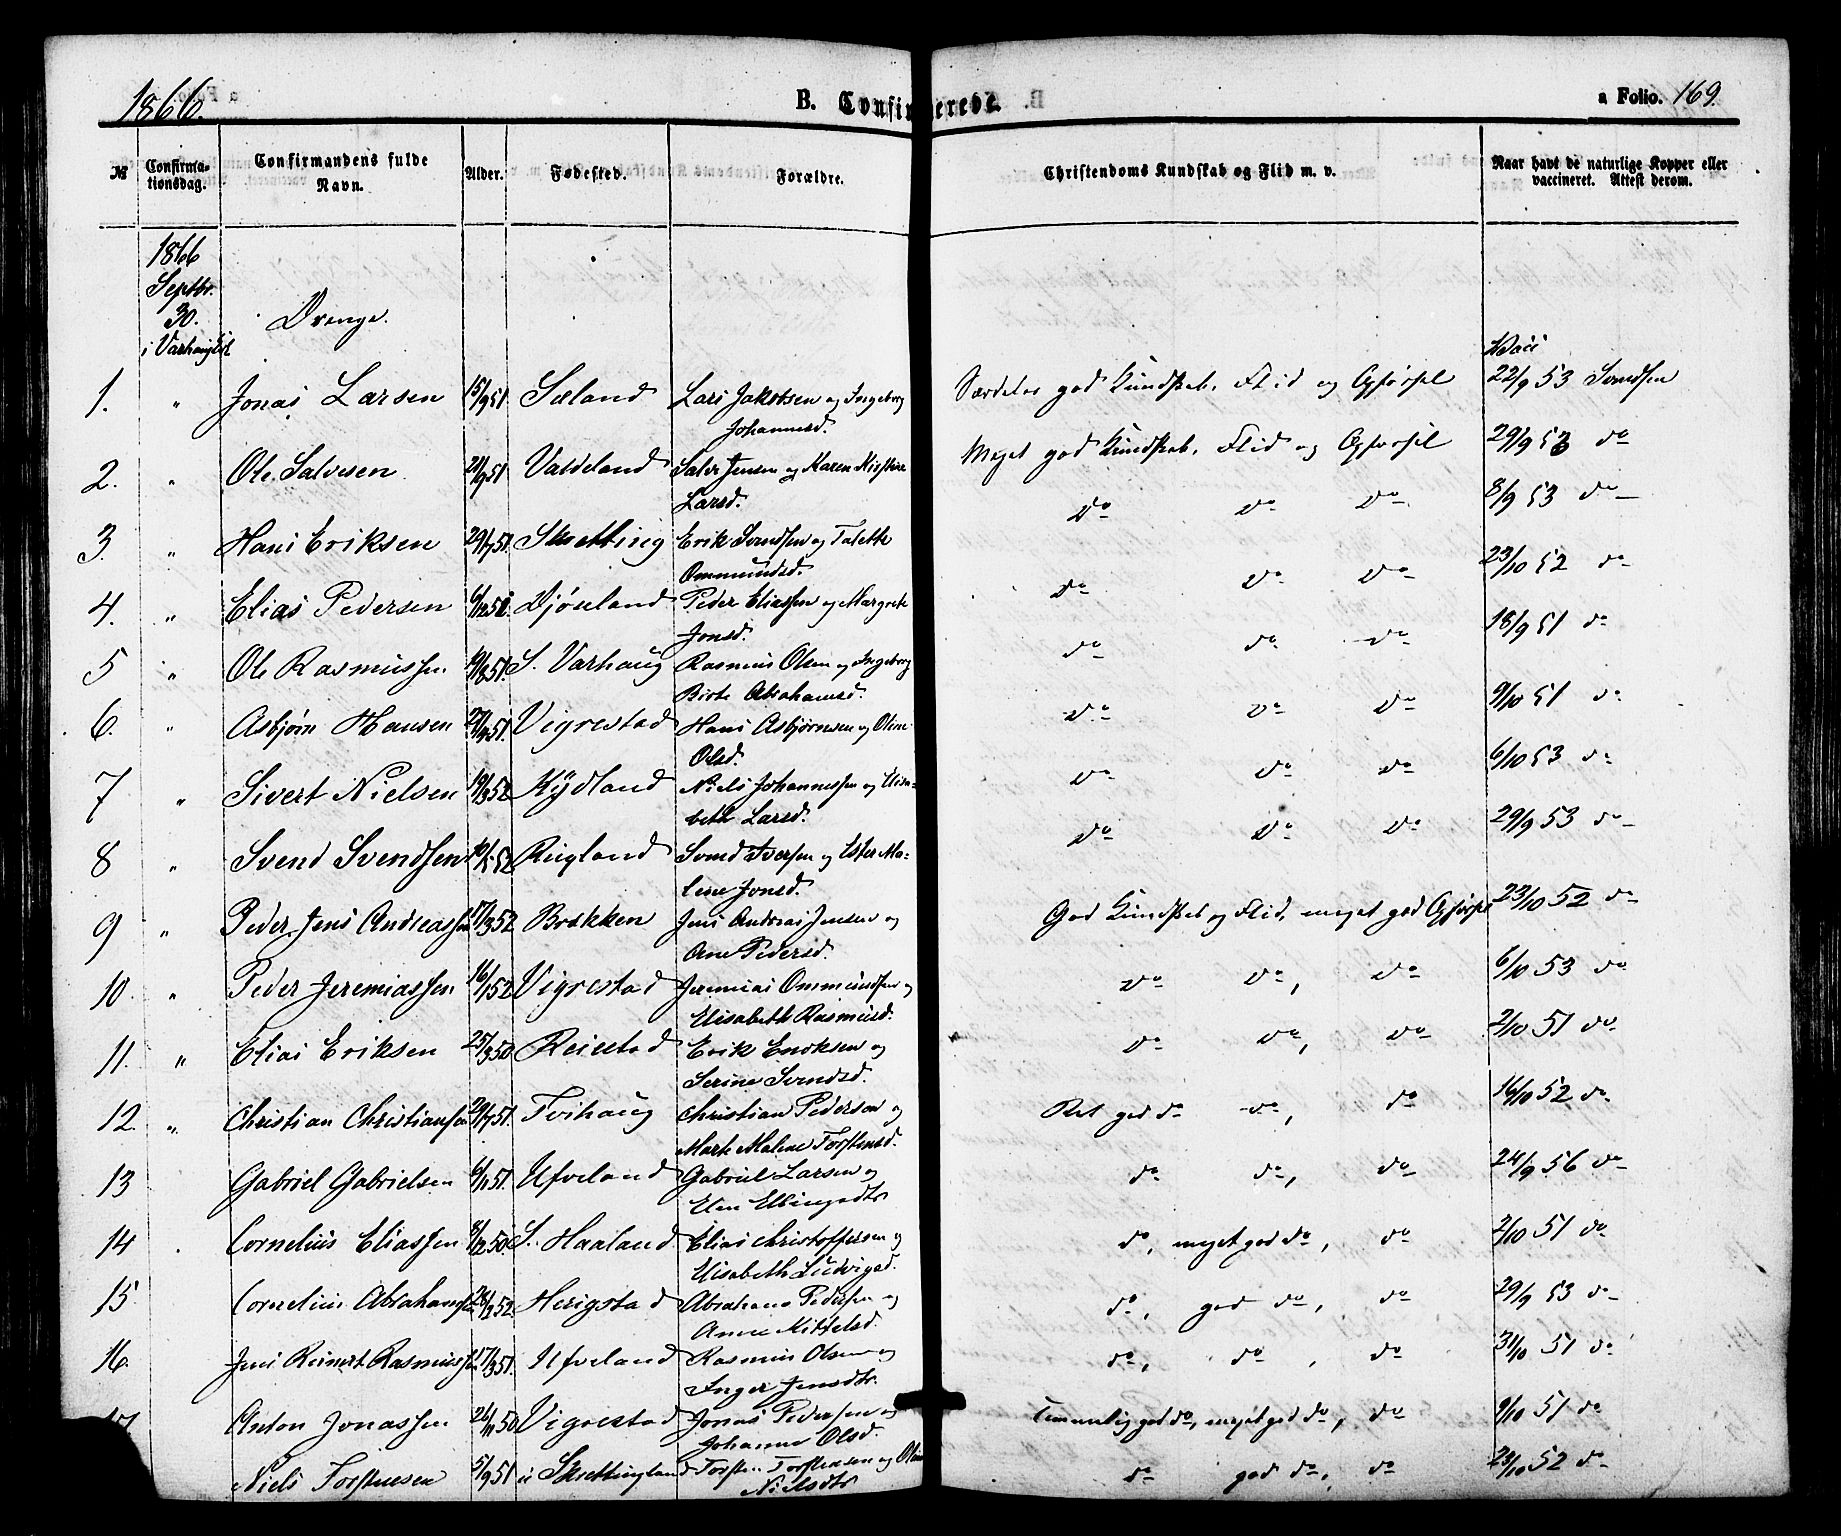 1866.
B. Confirmerede.
a Folio. 169.
№
Confirmationsdag.
Confirmandens fulde Navn.
Alder.
Fødested.
Forældre.
Christendoms Kundskab og Flid m. v.
Naar havt de naturlige Kopper eller vaccineret. Attest derom.
1866
Septbr.
30.
i Varhaug
Drenge.
Vacc
1. " Jonas Larsen 15/9 51 Sæland Lars Jakobsen og Ingeborg Særdeles god Kundskab, Flid og Opførsel 22/9 53 Svendsen
Johannesd.
2. " Ole Salvesen 51 Valdeland Salve Jensen og Karen Kirstine Meget god Kundskab, Flid og Opførsel 29/9 53 do
Larsd.
3. " Hans Eriksen 29/7 51. Skretting Erik Svendsen og Talette do do do 8/9 53 do
Ommundsd.
4. " Elias Pedersen 6/12 51. Djøseland Peder Eliassen og Margrete do do do 23/10 52 do
Jonsd.
5 " Ole Rasmussen 19/8 51. S. Varhaug Rasmus Olsen og Ingeborg do do do 18/9 51 do
Birte Abrahamsd.
6. " Asbjørn Hansen 51. Vigrestad Hans Asbjørnsen og Oline do do do 9/10 51 do
Olsd.
7 " Sivert Nielsen 19/3 52 Kydland Niels Johannessen og Elisa- do do do 6/10 53 do
beth Larsd.
8 " Svend Svendsen 52 Rugland Svend Iversen og Ester Ma- do do do 29/9 53 do
lene Jonsd.
9 " Peder Jens Andreassen 17/3 52 Brækken Jens Andreas Jensen og God Kundskab og Flid, meget god Opførsel 23/10 52 do
Ane Pedersd.
10. " Peder Jeremiassen 16/1 52 Vigrestad Jeremias Ommundsen og do do, do 6/10 53 do
Elisabeth Rasmusd.
11. " Elias Eriksen 25/3 50 Reiestad Erik Eriksen og do do, do 2/10 51 do
Serine Svendsd.
12. " Christian Christiansen 29/7 51. Tvihaug Christian Pederson og Ret god do do, do 16/10 52 do
Marte Malene Torstensd.
13 Gabriel Gabrielsen 6/11 51. Ufveland Gabriel Larsen og do do, do 24/9 56 do
Elen Ellingsdtr
14 Cornelius Eliassen 8/12 50 S. Haaland Elias Christoffersen og do, meget god do, do 2/10 51 do
Elisabeth Ludvigsd.
15 Cornelius Abrahamsen 52. Herigstad Abraham Pedersen og do, god do, do 29/9 53 do
Anne Kittelsd.
16. Jens Reinert Rasmussen 17/3 51. Ufveland Rasmus Olsen og do, do, do 31/10 51 do
Inger Jensdtr.
17 Anton Jonassen 26/11 50 Vigrestad Jonas Pedersen og Temmelig god do, meget god do, do 9/10 51 do
Johanne Olsd.
Niels Torstensen 5/9 51 Skrettingland Torsten Torstensen og Oline do god do, do 23/10 52 do
Nielsdtr